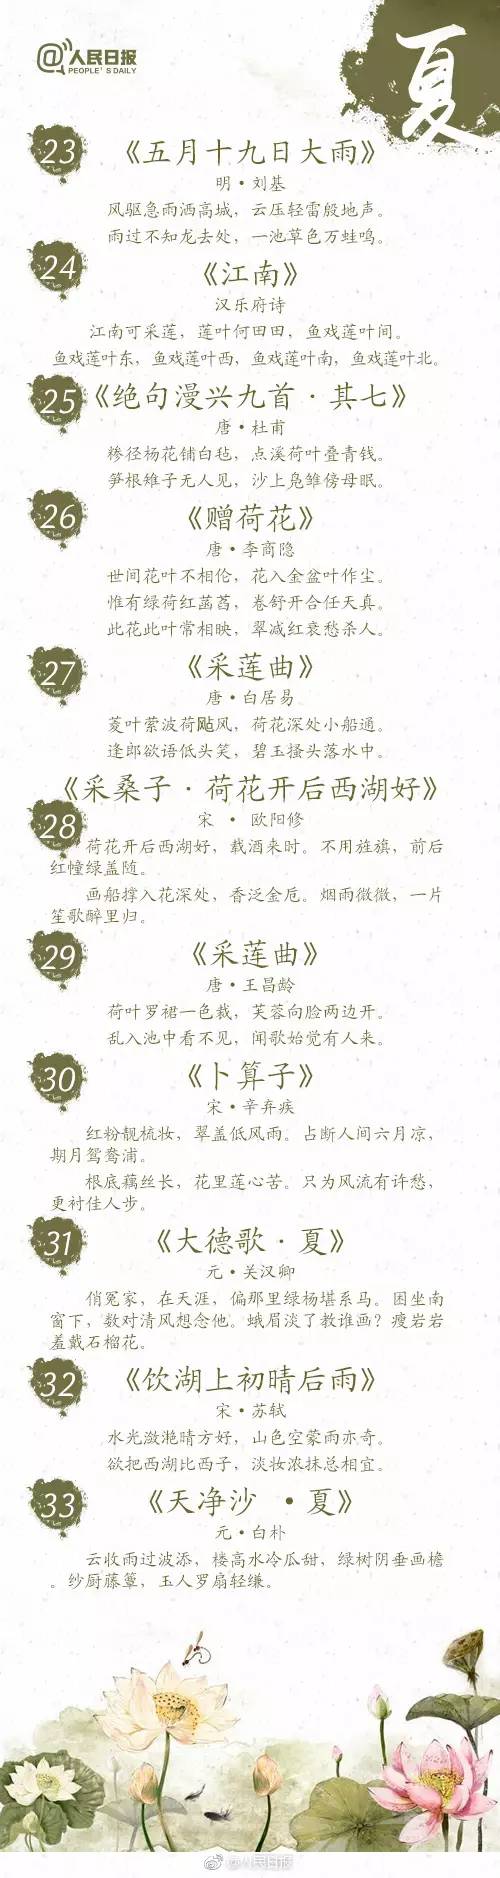 @人民日报
PEOPLE'S DAILY
夏
23
《五月十九日大雨》
明·刘基
风驱急雨洒高城，云压轻雷殷地声。
雨过不知龙去处，一池草色万蛙鸣。
24
《江南》
汉乐府诗
江南可采莲，莲叶何田田，鱼戏莲叶间。
鱼戏莲叶东，鱼戏莲叶西，鱼戏莲叶南，鱼戏莲叶北。
25
《绝句漫兴九首·其七》
唐·杜甫
糁径杨花铺白毡，点溪荷叶叠青钱。
笋根雉子无人见，沙上凫雏傍母眠。
26
《赠荷花》
唐·李商隐
世间花叶不相伦，花入金盆叶作尘。
惟有绿荷红菡萏，卷舒开合任天真。
此花此叶常相映，翠减红衰愁杀人。
27
《采莲曲》
唐·白居易
菱叶萦波荷飐风，荷花深处小船通。
逢郎欲语低头笑，碧玉搔头落水中。
《采桑子·荷花开后西湖好》
28
宋·欧阳修
荷花开后西湖好，载酒来时。不用旌旗，前后
红幢绿盖随。
画船撑入花深处，香泛金卮。烟雨微微，一片
笙歌醉里归。
29
《采莲曲》
唐·王昌龄
荷叶罗裙一色裁，芙蓉向脸两边开。
乱入池中看不见，闻歌始觉有人来。
30
《卜算子》
宋·辛弃疾
红粉靓梳妆，翠盖低风雨。占断人间六月凉，
期月鸳鸯浦。
根底藕丝长，花里莲心苦。只为风流有许愁，
更衬佳人步。
31
《大德歌·夏》
元·关汉卿
俏冤家，在天涯，偏那里绿杨堪系马。困坐南
窗下，数对清风想念他。蛾眉淡了教谁画？瘦岩岩
羞戴石榴花。
32
《饮湖上初晴后雨》
宋·苏轼
水光潋滟晴方好，山色空蒙雨亦奇。
欲把西湖比西子，淡妆浓抹总相宜。
33
《天净沙 ·夏》
元·白朴
云收雨过波添，楼高水冷瓜甜，绿树阴垂画檐
。纱厨藤簟，玉人罗扇轻缣。
@人民日报